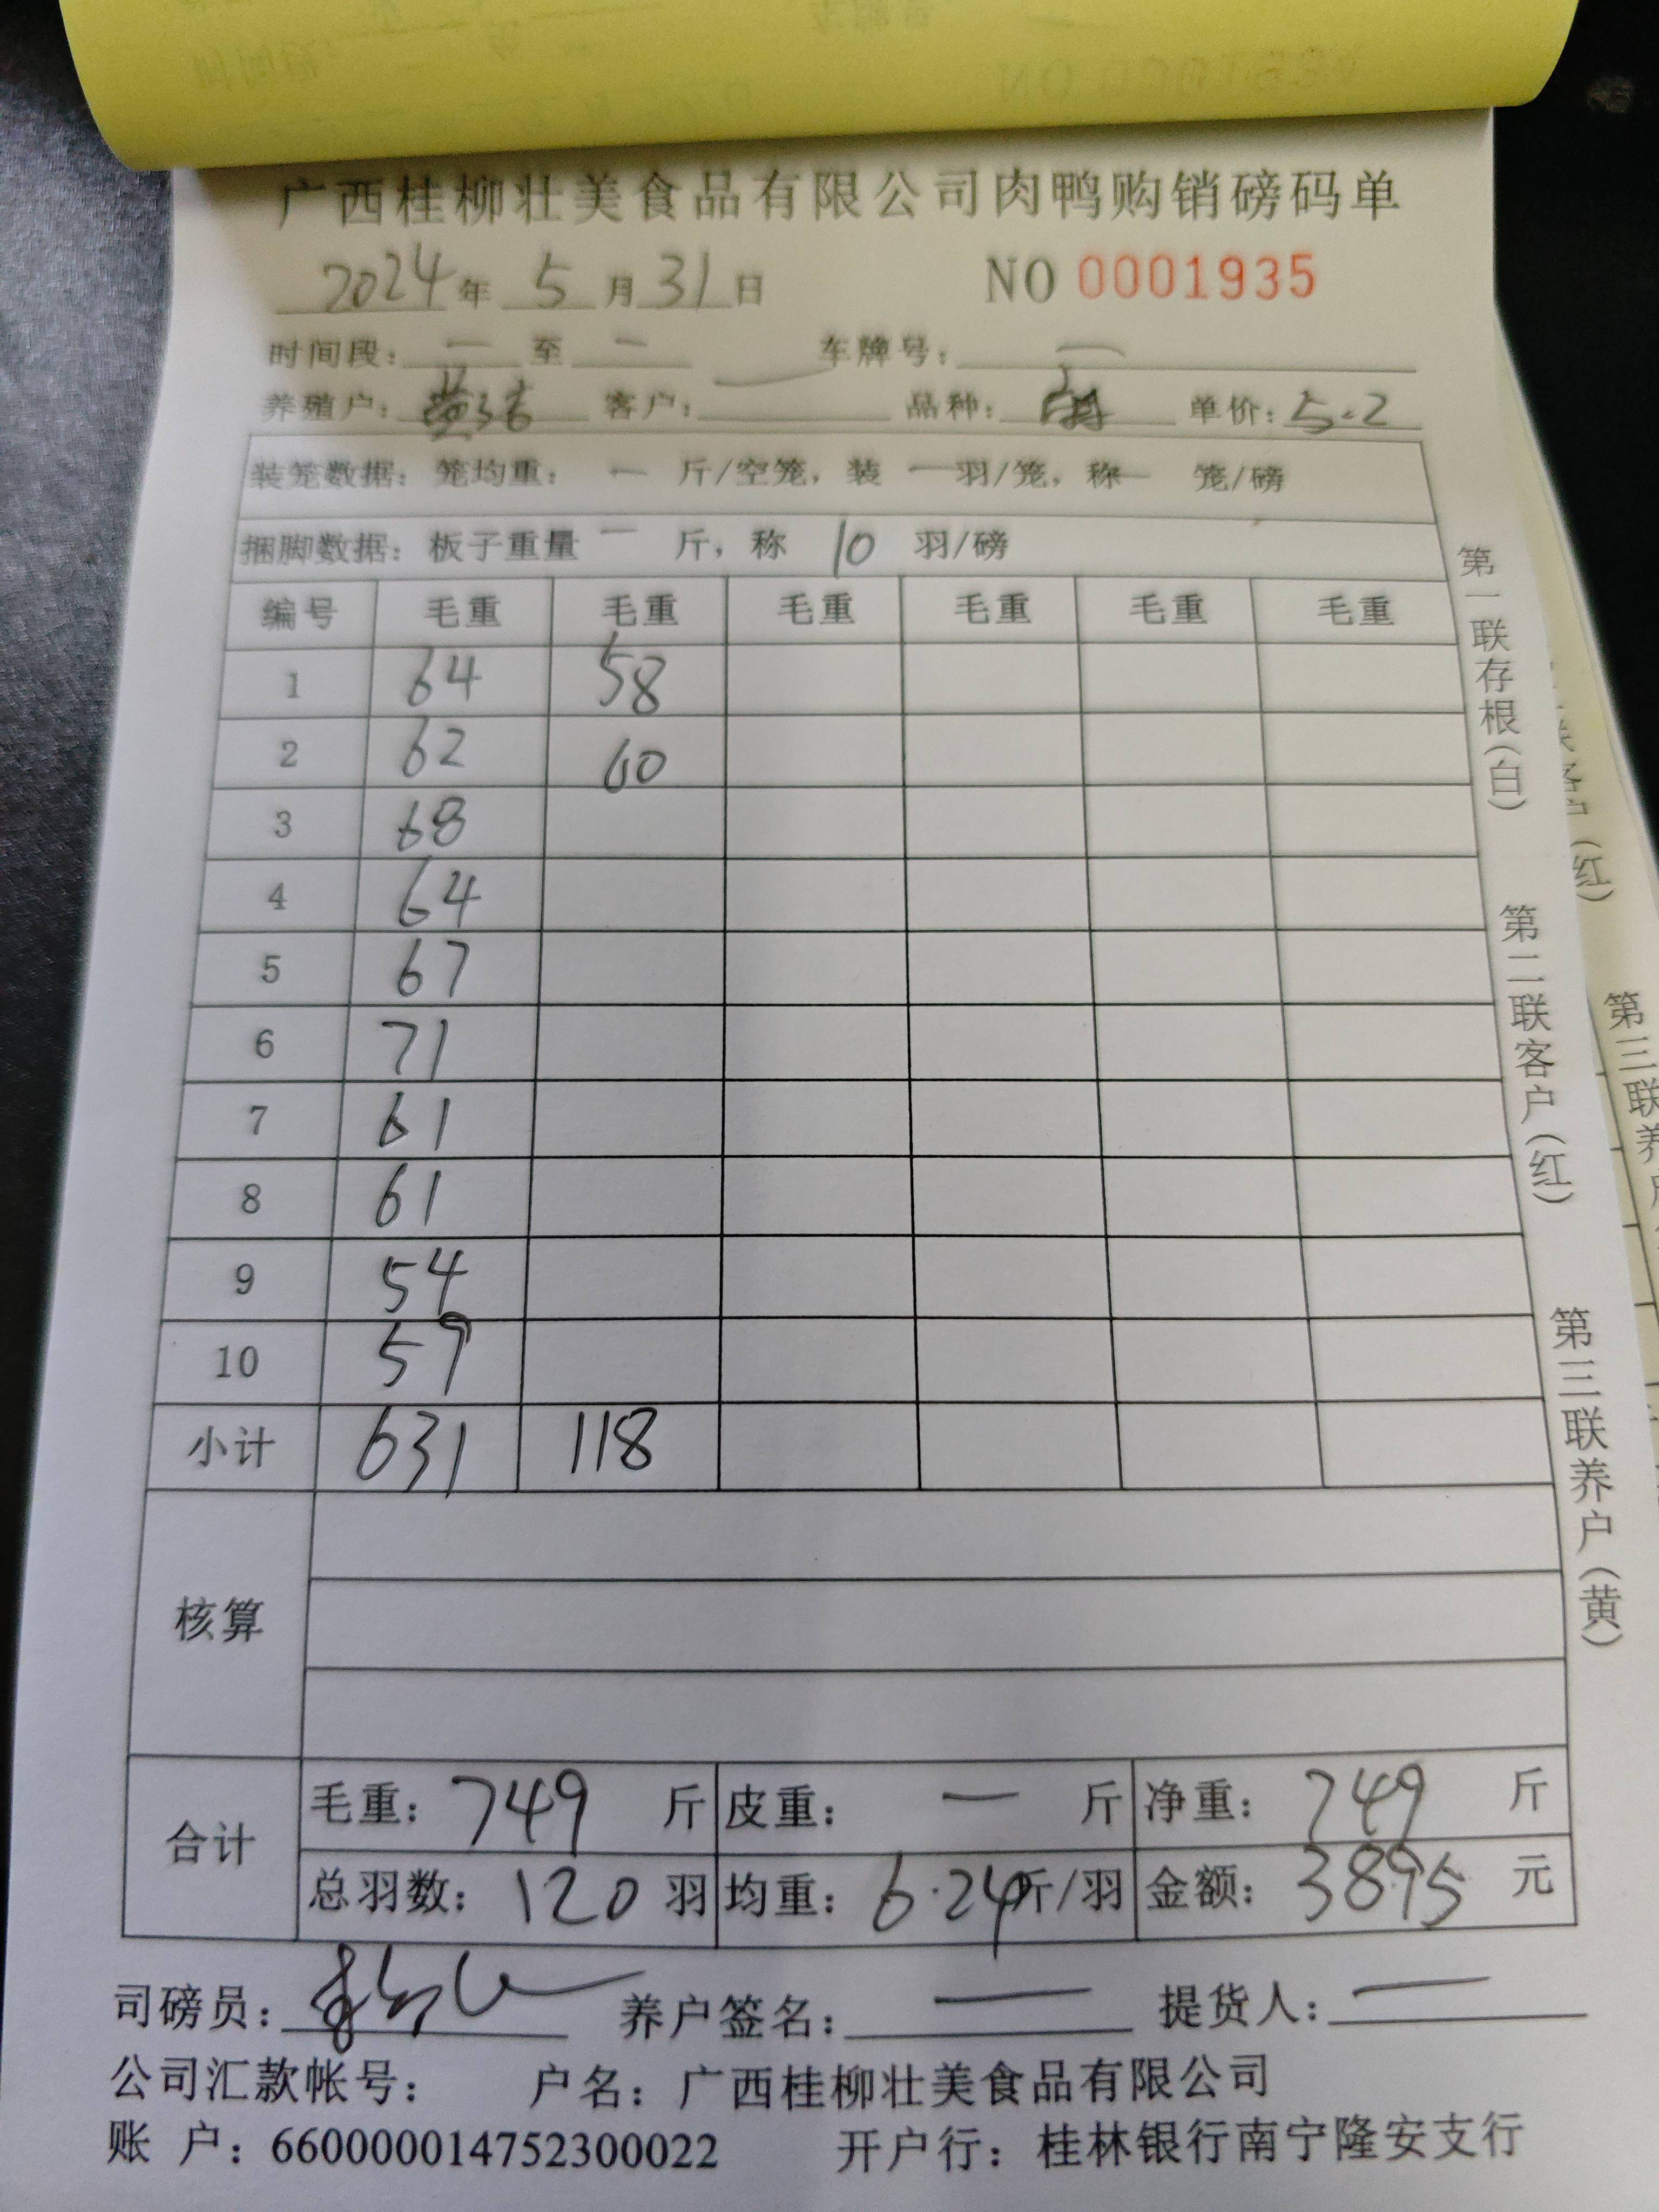 广西桂柳壮美食品有限公司肉鸭购销磅码单
2024年 5 月 31 日 NO 0001935
时间段: 一 至 一 车牌号: 一
养殖户: 客户: 一 品种: 单价: 5.2
装笼数据: 笼均重: 一 斤/空笼, 装 一 羽/笼, 称 一 笼/磅
捆脚数据: 板子重量 一 斤, 称 10 羽/磅
编号 毛重 毛重 毛重 毛重 毛重 毛重
1 64 58
2 62 60
3 68
4 64
5 67
6 71
7 61
8 61
9 54
10 59
小计 631 118
核算
合计
毛重: 749 斤 皮重: 一 斤 净重: 749 斤
总羽数: 120 羽 均重: 6.24 斤/羽 金额: 3895 元
司磅员: 养户签名: 一 提货人: 一
公司汇款帐号: 户名: 广西桂柳壮美食品有限公司
账 户: 660000014752300022 开户行: 桂林银行南宁隆安支行
第一联存根(白) 第二联客户(红) 第三联养户(黄)